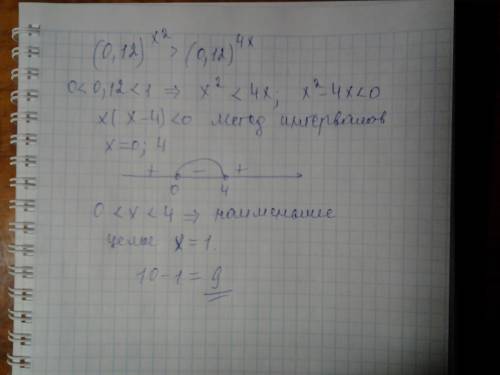 (0,12)^x² > (0,12)^4x
0<0,12<1 ⇒ x² < 4x; x²-4x<0
x(x-4)<0 метод интервалов
x=0; 4
+ - +
0 4
0 < x < 4 ⇒ наименьшее
целое x=1.
10-1=9